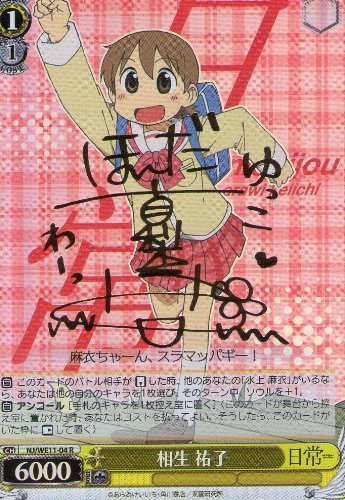 1
1
日常
nichijou
arawi keiichi
ほんだ
ゆっこ
麻衣ちゃーん、スラマッパギー!
このカードのバトル相手が した時、他のあなたの「水上 麻衣」がいるなら、あなたは他の自分のキャラを1枚選び、そのターン中、ソウルを+1。
アンコール [手札のキャラを1枚控え室に置く] (このカードが舞台から控え室に置かれた時、あなたはコストを払ってよい。そうしたら、このカードがいた枠にレストして置く)
NJ/WE11-04 R
6000
相生 祐子
日常
©あらゐけいいち・角川書店/東雲研究所